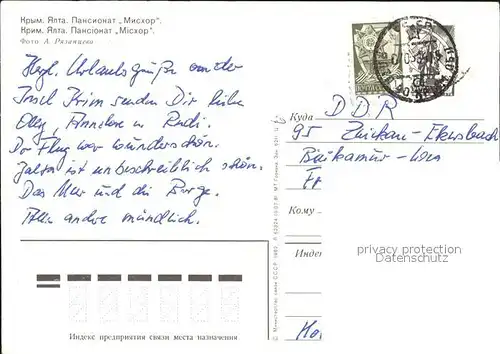 Крым. Ялта. Пансионат „Мисхор".
Крим. Ялта. Пансіонат „Місхор".
Фото А. Рязанцева
Herzl. Urlaubsgrüße von der
Insel Krim senden Dir liebe
Elly, Annelore u. Rudi.
Der Flug war wunderschön.
Jalta ist unbeschreiblich schön.
Das Meer und die Berge.
Alles andre mündlich.
Индекс предприятия связи места назначения
Куда DDR
95 Zwickau-
Кому
Индекс
privacy protection
Datenschutz